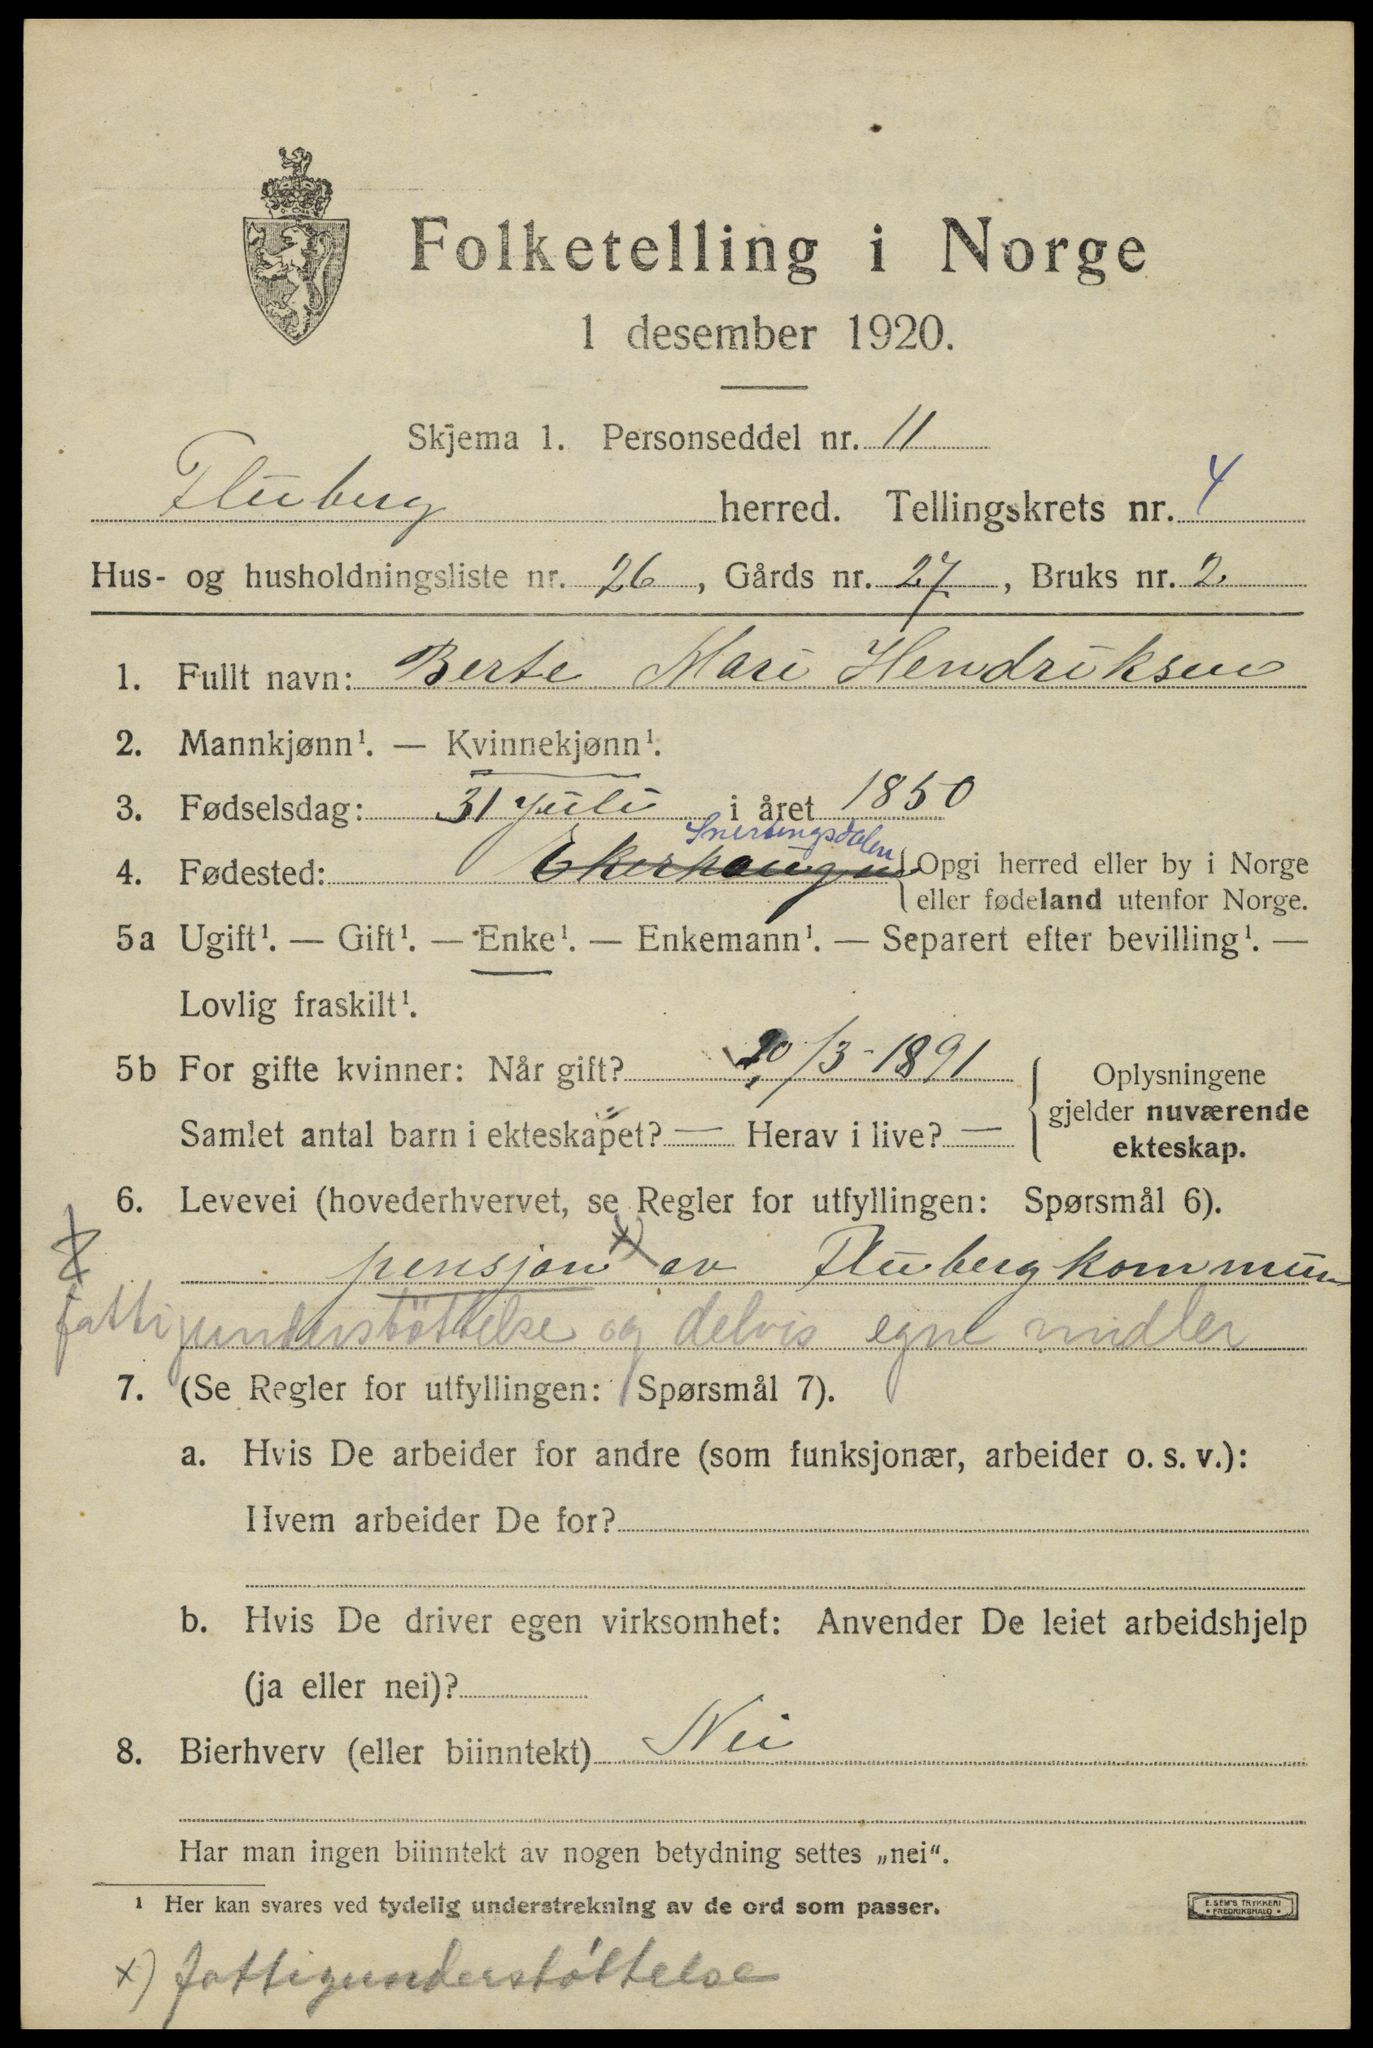 Folketelling i Norge
1 desember 1920.
Skjema 1. Personseddel nr. 11
Fluberg herred. Tellingskrets nr. 4
Hus- og husholdningsliste nr. 26, Gårds nr. 27, Bruks nr. 2
1. Fullt navn: Berte Mari Hendriksen
2. Mannkjønn¹. — Kvinnekjønn¹.
3. Fødselsdag: 31 juli i året 1850
Snertingsdalen
4. Fødested: Ekerhaugen { Opgi herred eller by i Norge
eller fødeland utenfor Norge.
5a Ugift¹. — Gift¹. — Enke¹. — Enkemann¹. — Separert efter bevilling¹. —
Lovlig fraskilt¹.
5b For gifte kvinner: Når gift? 20/3-1891
Samlet antal barn i ekteskapet? — Herav i live? —
{ Oplysningene
gjelder nuværende
ekteskap.
6. Levevei (hovederhvervet, se Regler for utfyllingen: Spørsmål 6).
pensjon x) av Fluberg kommun
fattigunderstöttelse og delvis egne midler
7. (Se Regler for utfyllingen: Spørsmål 7).
a. Hvis De arbeider for andre (som funksjonær, arbeider o. s. v.):
Hvem arbeider De for?
b. Hvis De driver egen virksomhet: Anvender De leiet arbeidshjelp
(ja eller nei)?
8. Bierhverv (eller biinntekt) Nei
Har man ingen biinntekt av nogen betydning settes „nei“.
¹ Her kan svares ved tydelig understrekning av de ord som passer.
E. SEM'S TRYKKERI
• FREDRIKSHALD •
x) fattigunderstøttelse